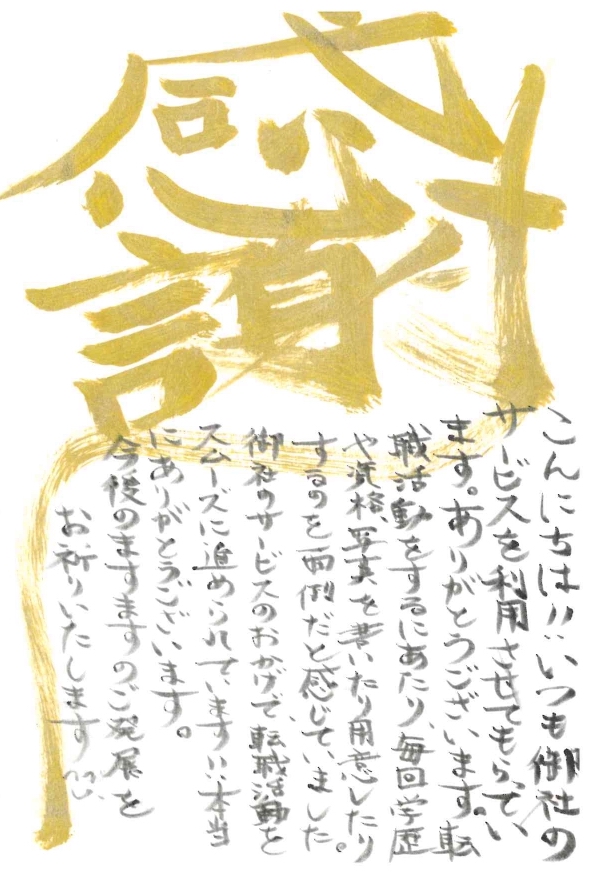 感謝
こんにちは!!いつも御社の
サービスを利用させてもらってい
ます。ありがとうございます。転
職活動をするにあたり、毎回学歴
や資格、写真を書いたり用意したり
するのを面倒だと感じていました。
御社のサービスのおかげで、転職活動を
スムーズに進められています!!本当
にありがとうございます。
今後のますますのご発展を
お祈りいたします